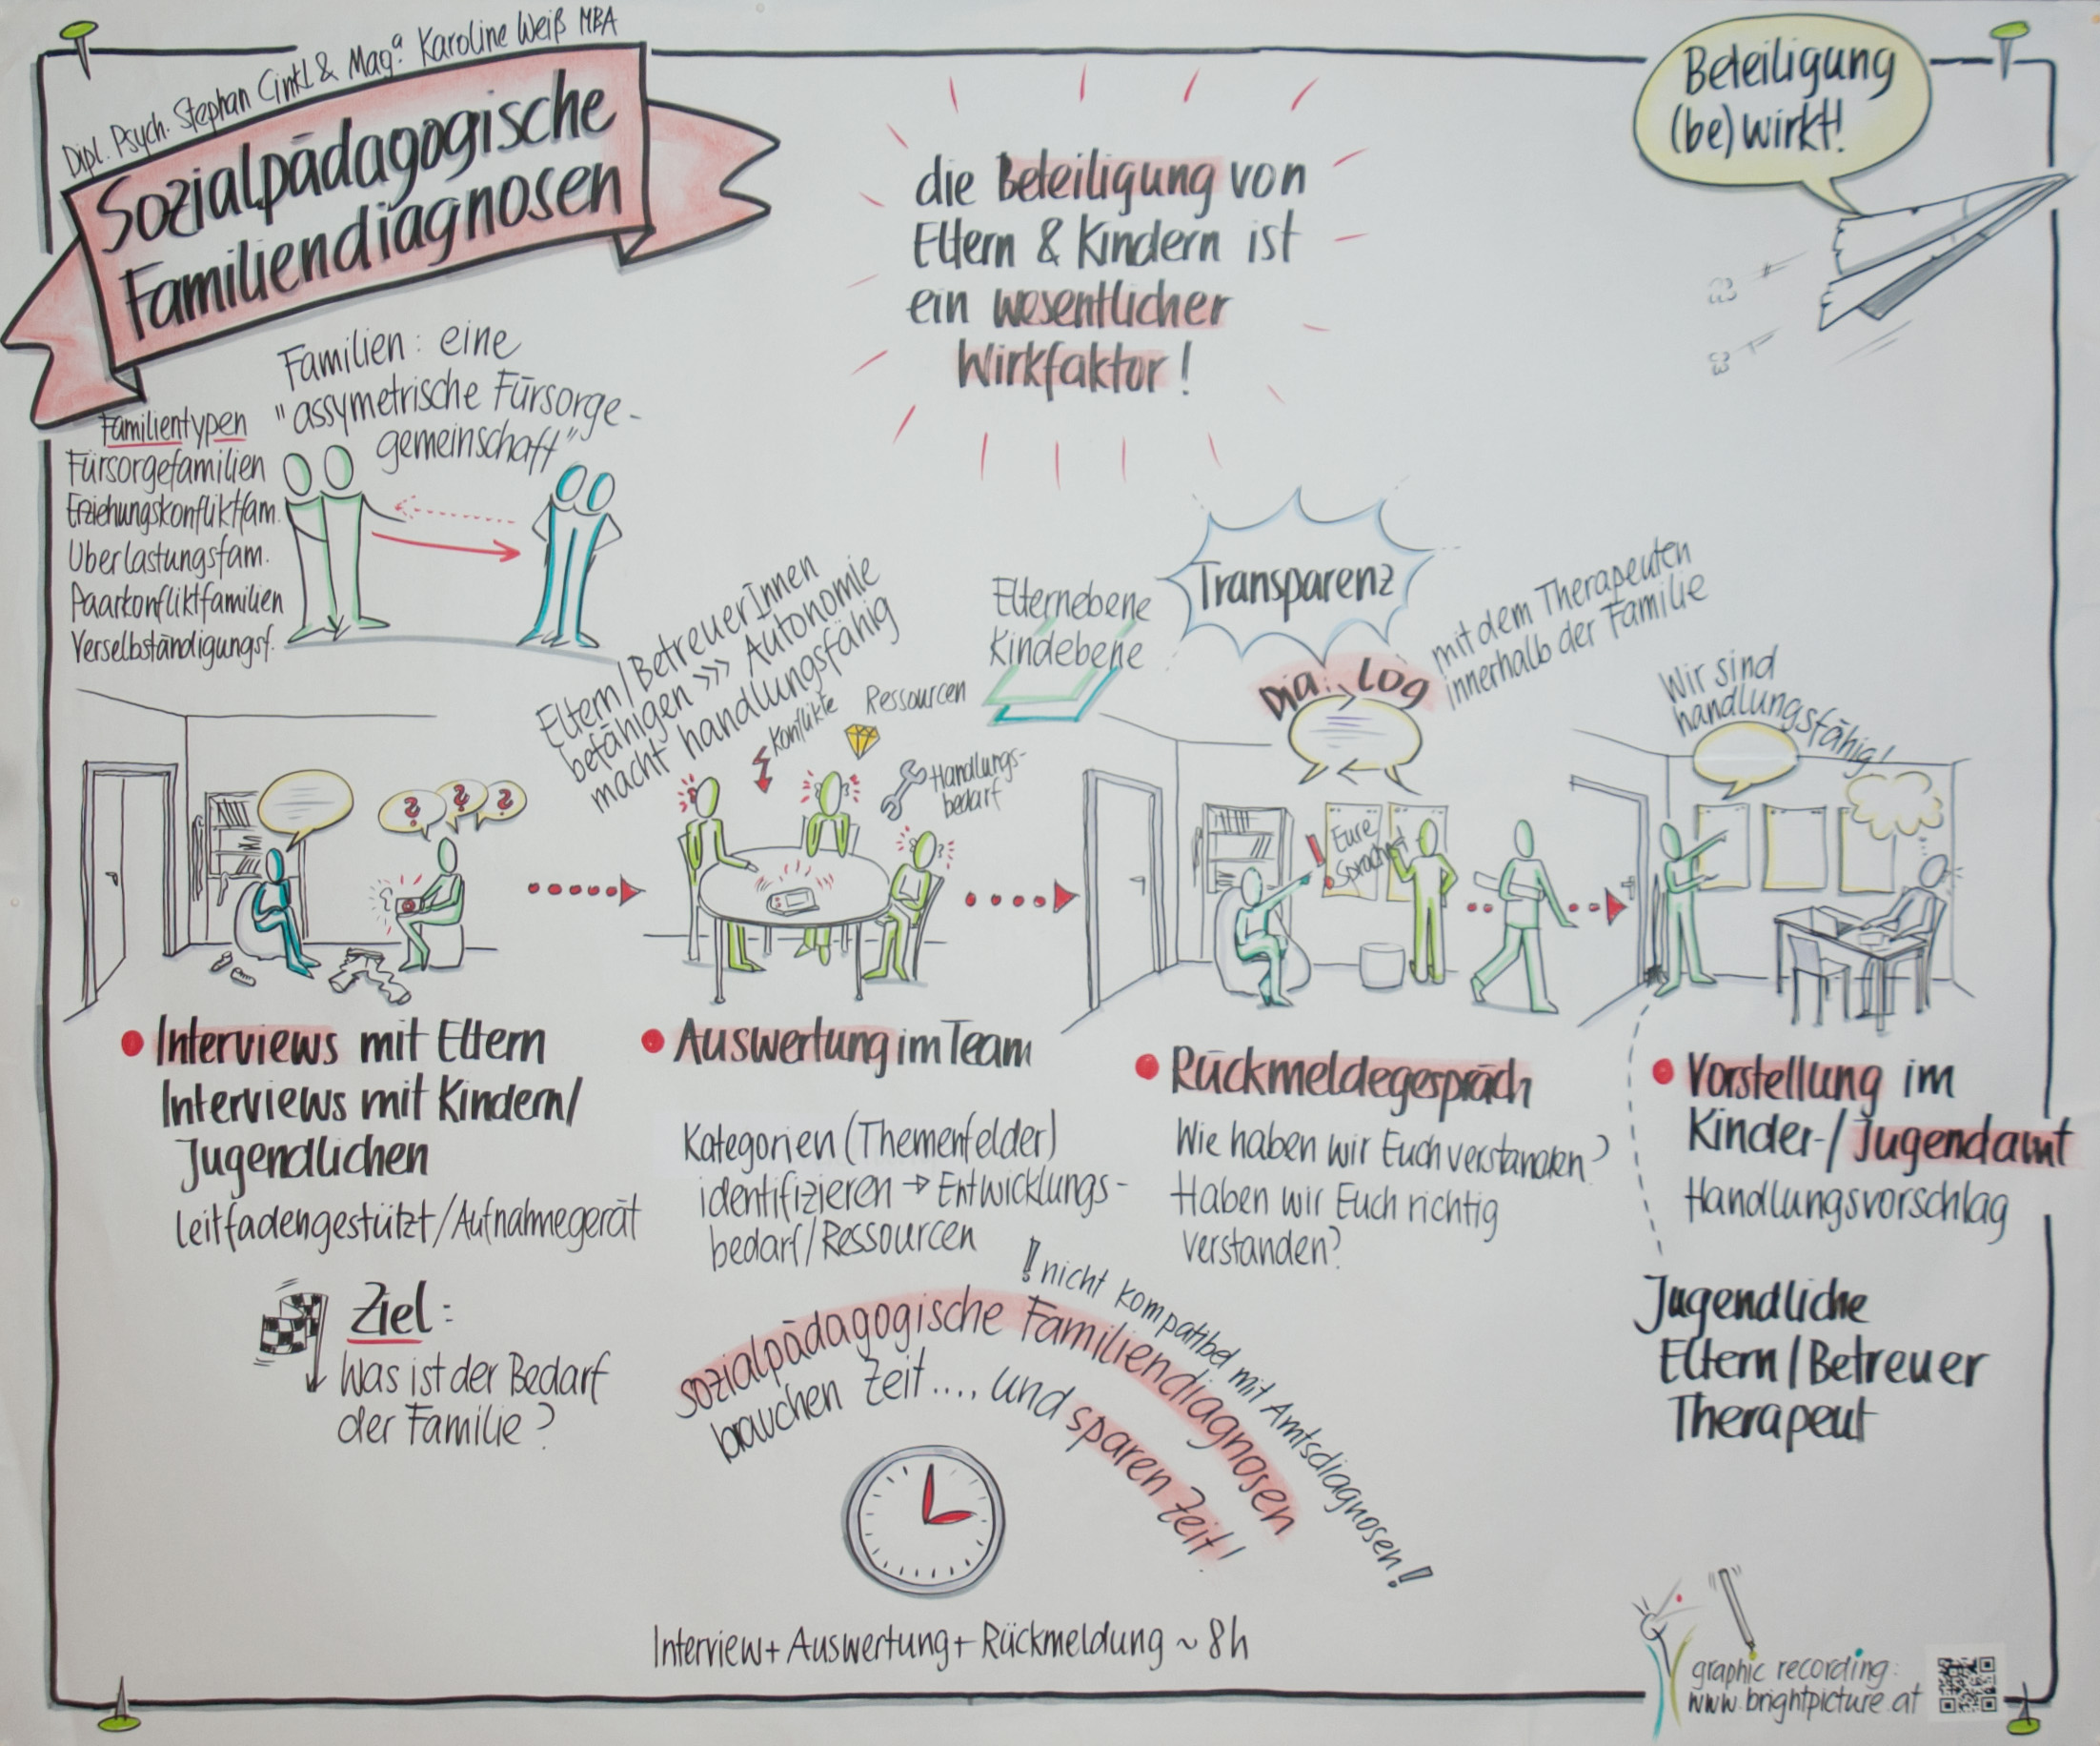 Dipl. Psych. Stephan Cinkl & Mag.ª Karoline Weiß MBA
Sozialpädagogische
Familiendiagnosen
die Beteiligung von
Eltern & Kindern ist
ein wesentlicher
Wirkfaktor!
Beteiligung
(be)wirkt!
Familien: eine
"assymetrische Fürsorge-
gemeinschaft"
Familientypen
Fürsorgefamilien
Erziehungskonfliktfam.
Überlastungsfam.
Paarkonfliktfamilien
Verselbständigungsf.
Eltern/BetreuerInnen
befähigen >>> Autonomie
macht handlungsfähig
Konflikte
Ressourcen
Handlungs-
bedarf
Elternebene
Kindebene
Transparenz
Dia: Log
mit dem Therapeuten
innerhalb der Familie
Wir sind
handlungsfähig!
? ? ?
! Eure
Sprache!
• Interviews mit Eltern
Interviews mit Kindern/
Jugendlichen
Leitfadengestützt/Aufnahmegerät
Ziel:
Was ist der Bedarf
der Familie?
• Auswertung im Team
Kategorien (Themenfelder)
identifizieren → Entwicklungs-
bedarf/Ressourcen
• Rückmeldegespräch
Wie haben wir Euch verstanden?
Haben wir Euch richtig
verstanden?
• Vorstellung im
Kinder-/Jugendamt
Handlungsvorschlag
Jugendliche
Eltern/Betreuer
Therapeut
! nicht kompatibel mit Amtsdiagnosen!
sozialpädagogische Familiendiagnosen
brauchen Zeit...., und sparen Zeit!
Interview + Auswertung + Rückmeldung ~ 8h
graphic recording:
www.brightpicture.at